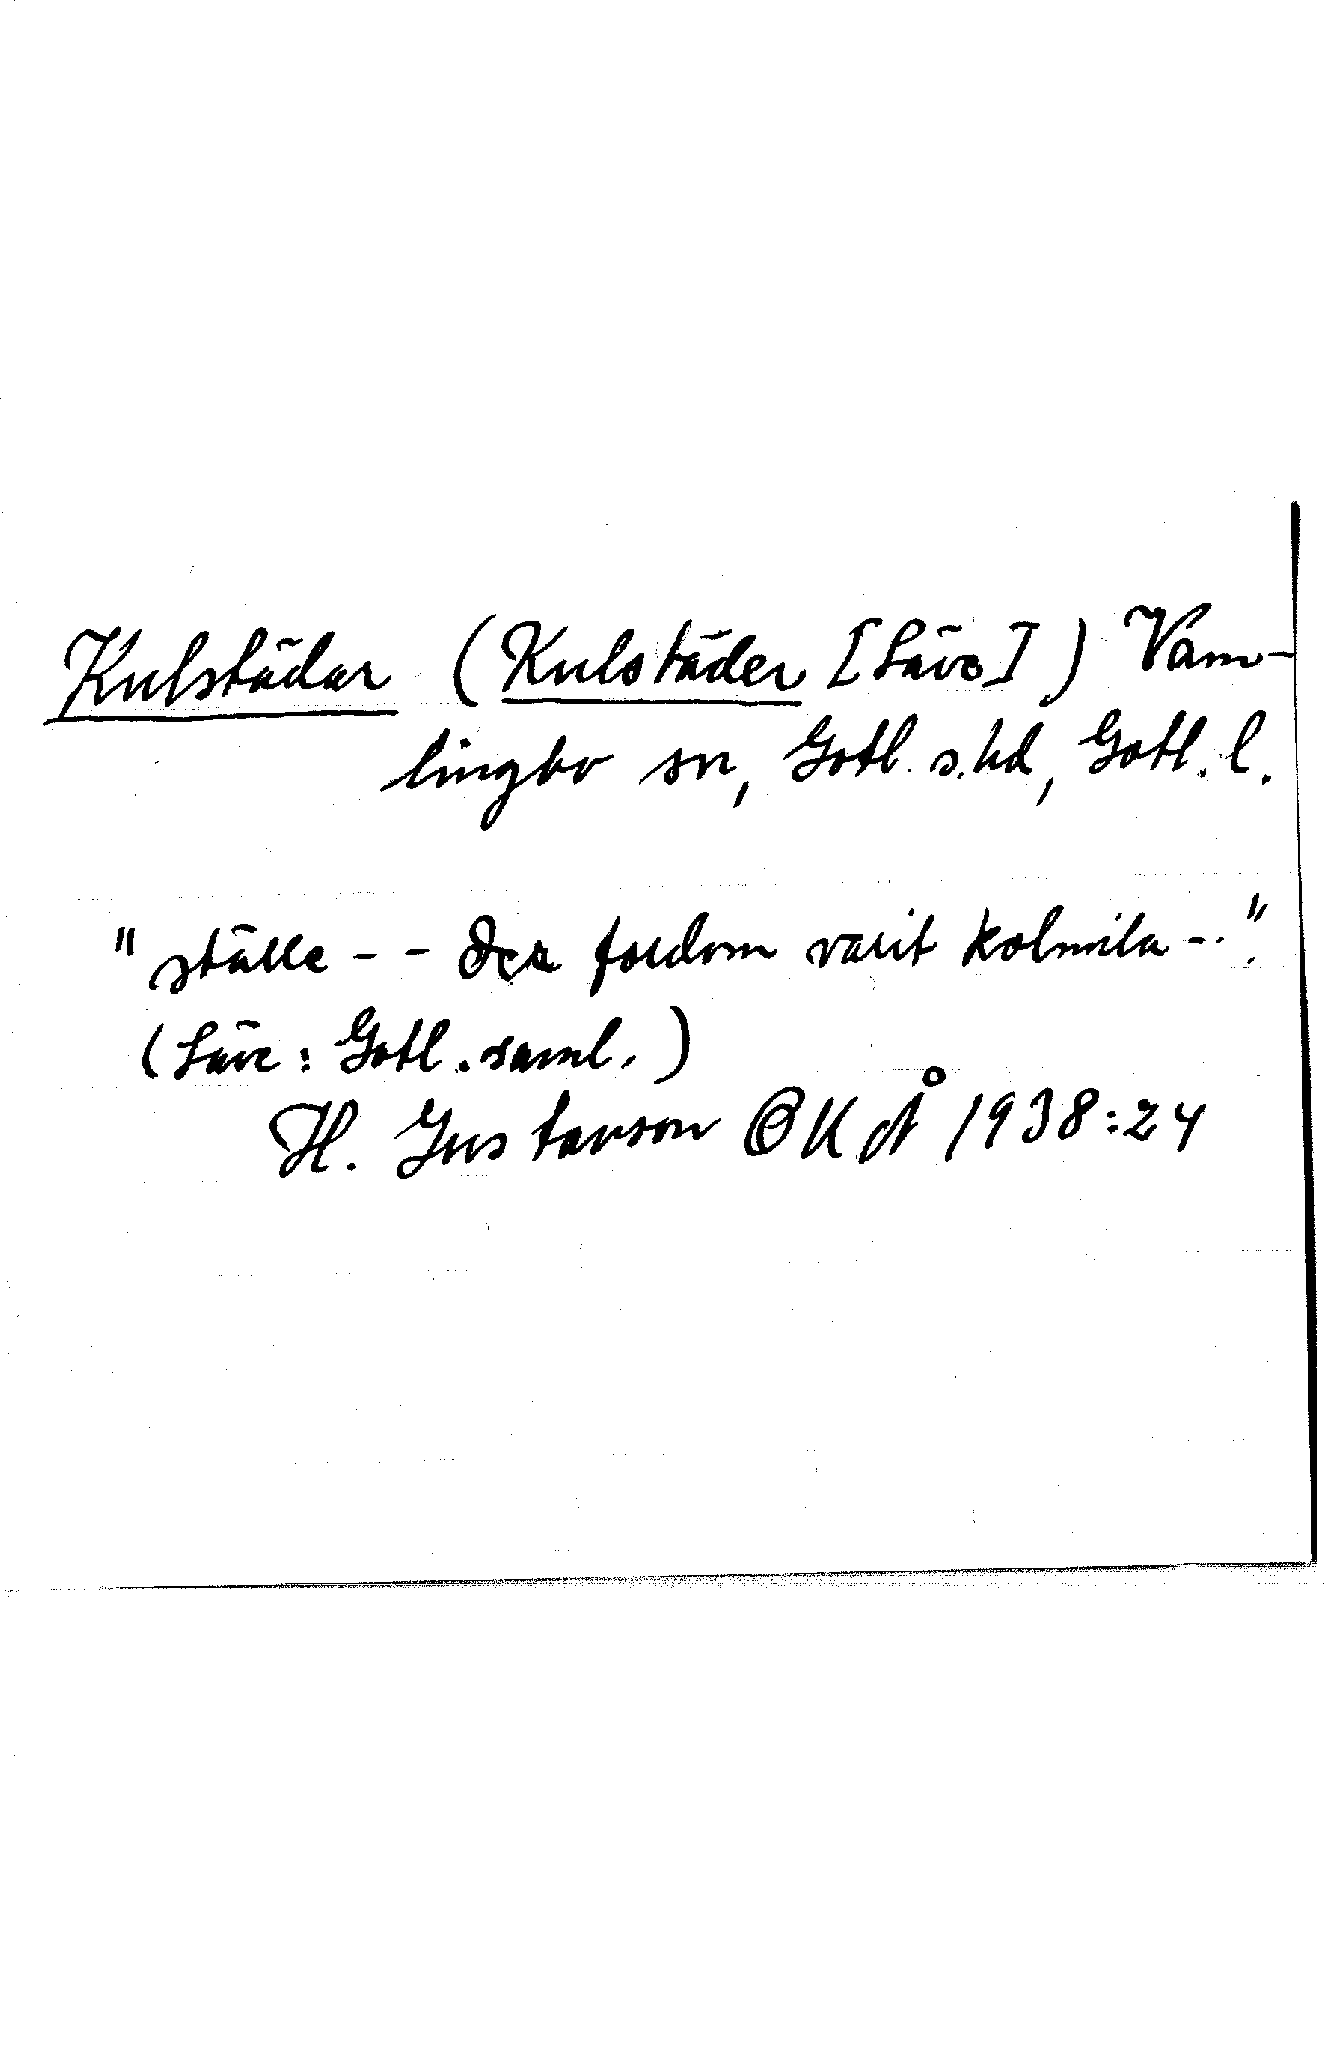 Kulstädar (Kulstäder [Säve]) Väm-
lingbo sn, Gotl. s.hd, Gotl. l.
"ställe - - der fordom varit kolmila -."
(Säve: Gotl. saml.)
H. Gustavson OKÅ 1938:24